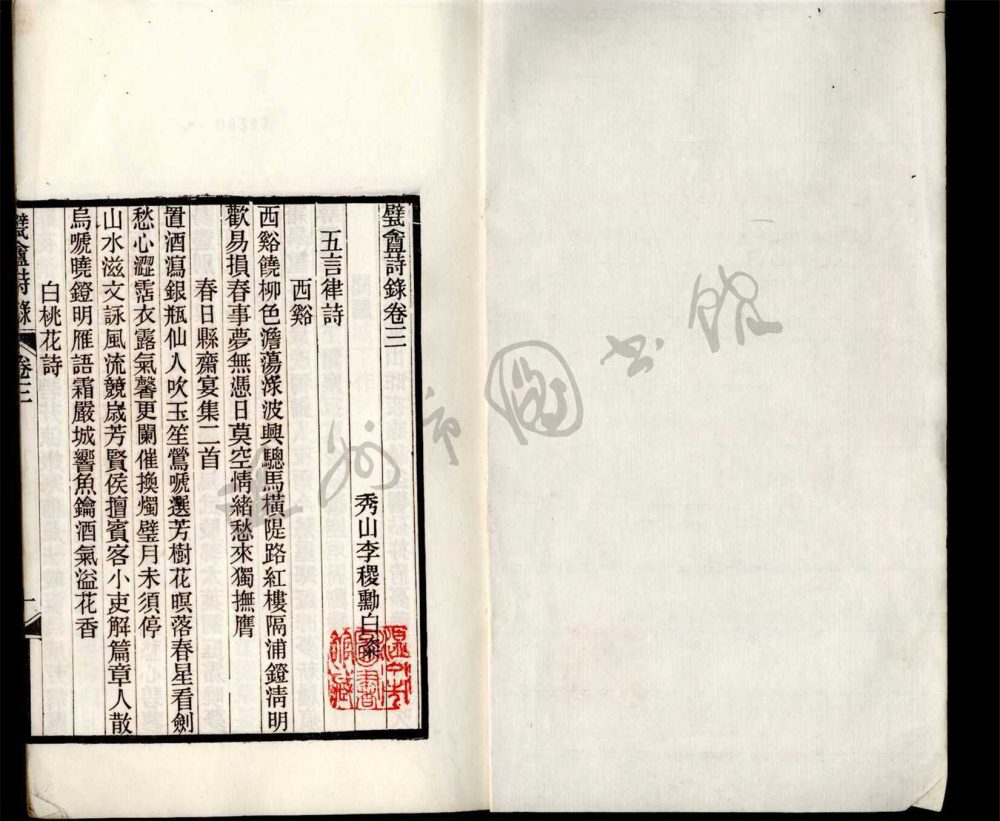 甓盦詩錄卷三
秀山李稷勳白粲
五言律詩
西谿
西谿饒柳色澹蕩淥波興驄馬橫隄路紅樓隔浦鐙淸明
歡易損春事夢無憑日莫空情緒愁來獨撫膺
春日縣齋宴集二首
置酒瀉銀瓶仙人吹玉笙鶯嗁選芳樹花暝落春星看劍
愁心澀霑衣露氣馨更闌催換燭璧月未須停
山水滋文詠風流競歲芳賢侯擅賓客小吏解篇章人散
烏嗁曉鐙明雁語霜嚴城響魚鑰酒氣溢花香
白桃花詩
甓盦詩錄
卷三
一
溫州市圖書館
溫州市圖書館藏